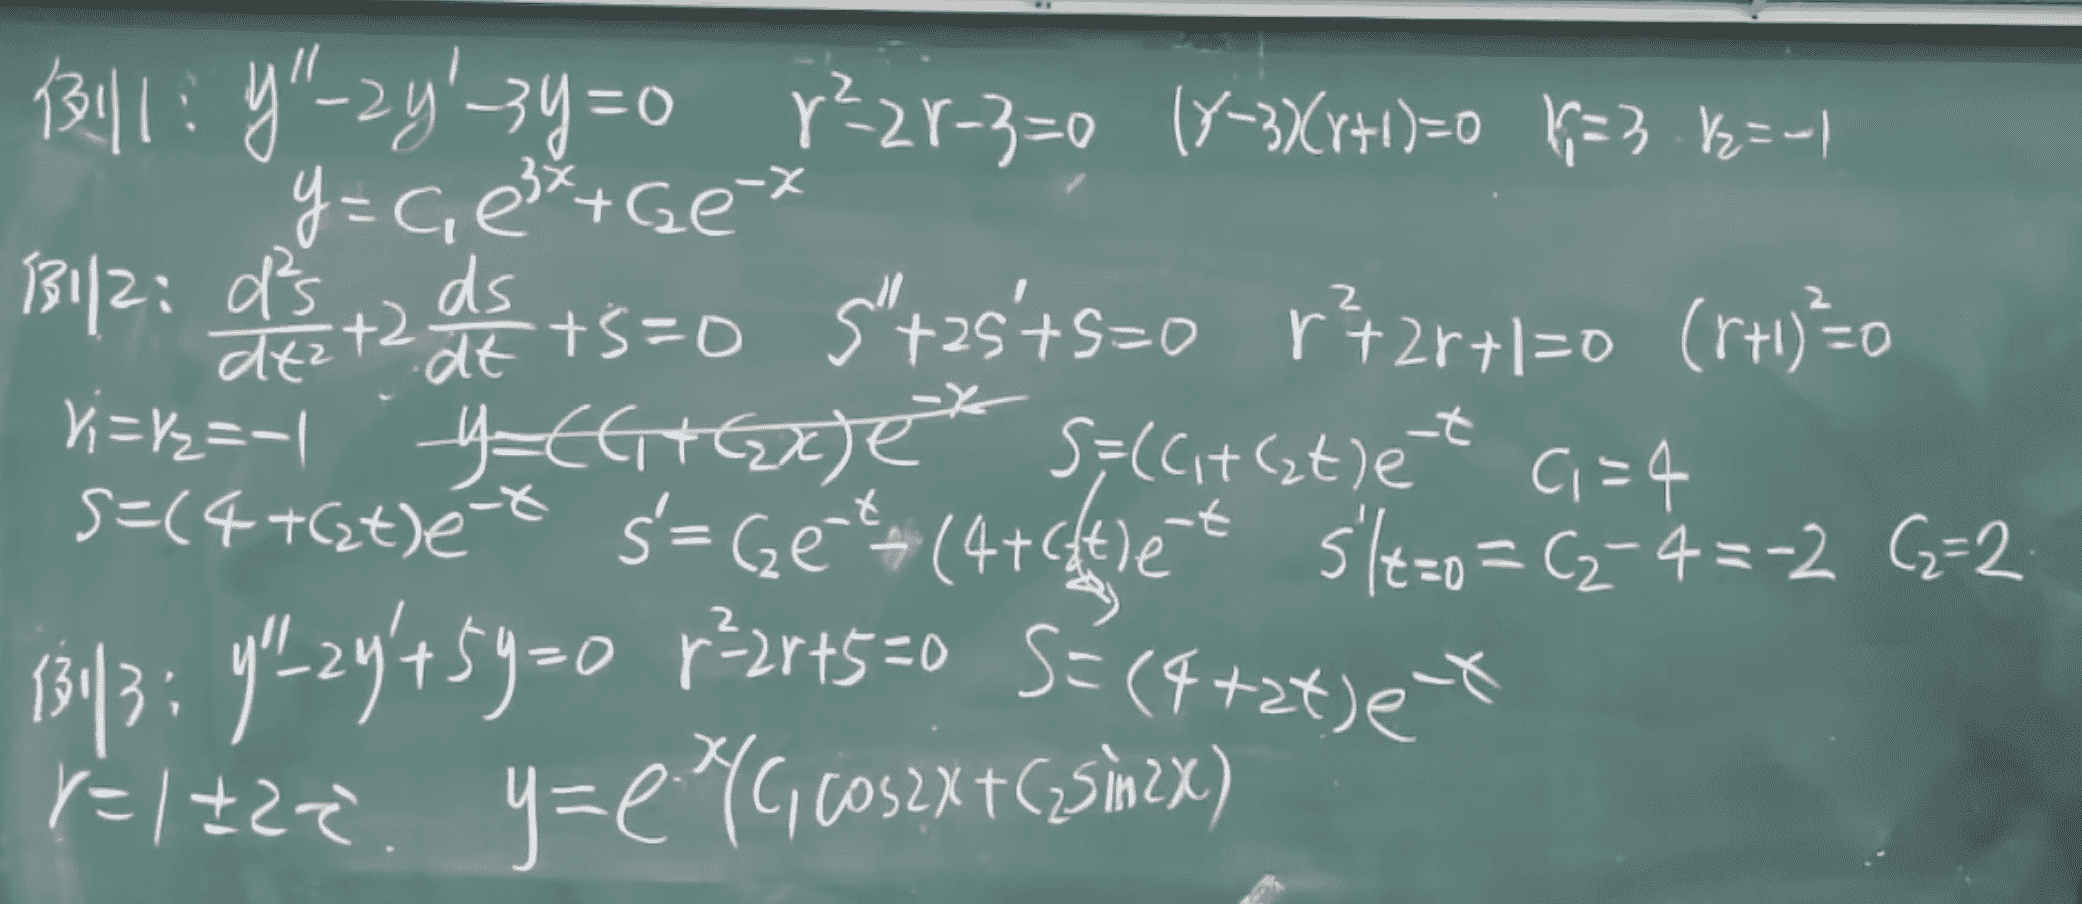 例1: y''-2y'-3y=0 r²-2r-3=0 (r-3)(r+1)=0 r₁=3 r₂=-1
y=C₁e^{3x}+C₂e^{-x}
例2: \frac{d²s}{dt²}+2\frac{ds}{dt}+s=0 s''+2s'+s=0 r²+2r+1=0 (r+1)²=0
r₁=r₂=-1 ~~y=(C₁+C₂x)e^{-x}~~ S=(C₁+C₂t)e^{-t} C₁=4
S=(4+C₂t)e^{-t} S'=C₂e^{-t}-(4+C₂t)e^{-t} S'|t=0=C₂-4=-2 C₂=2
例3: y''-2y'+5y=0 r²-2r+5=0 S=(4+2t)e^{-t}
r=1±2i. y=e^{x}(C₁cos2x+C₂sin2x)